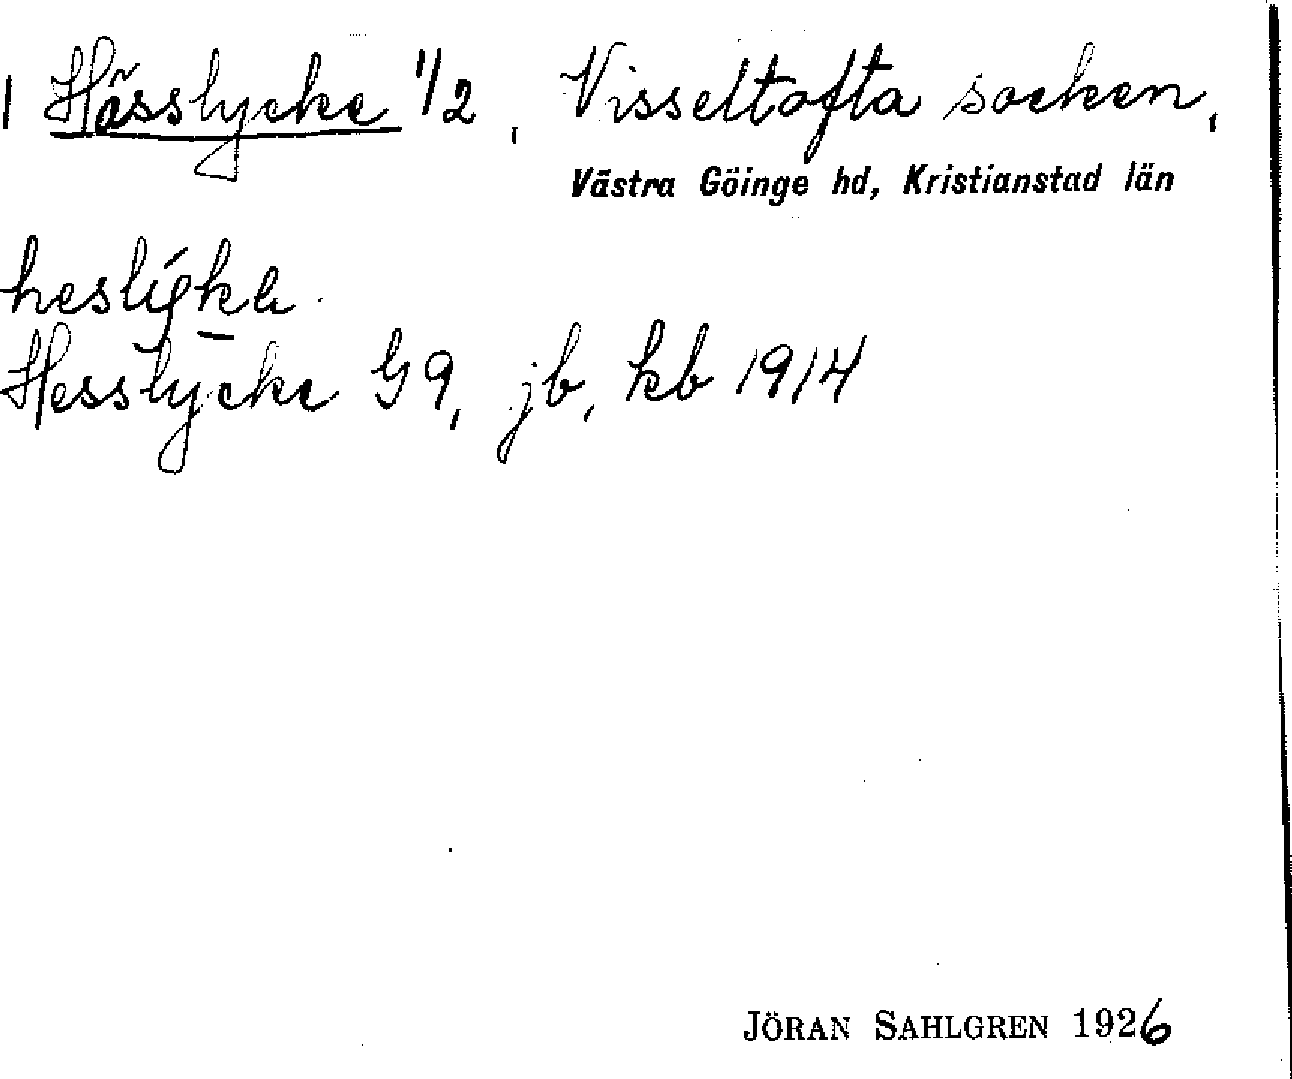 1 Hässlycke 1/2, Visseltofta socken,
Västra Göinge hd, Kristianstad län
heslýkə
Hesslycke G 9, jb, kb 1914
JÖRAN SAHLGREN 1926